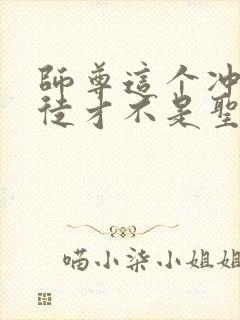 師尊這个冲
徒才不是聖
喵小柒小姐姐